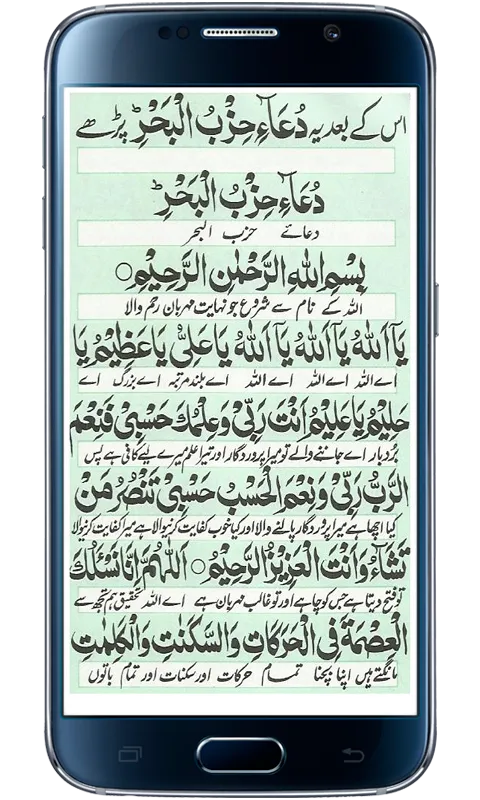 اس کے بعد یہ دُعَآءِ حِزْبُ الْبَحْرِ پڑھے
دُعَآءِ حِزْبُ الْبَحْرِ
دعائے حزب البحر
بِسْمِ اللهِ الرَّحْمٰنِ الرَّحِيْمِ ○
اللہ کے نام سے شروع جو نہایت مہربان رحم والا
يَآ اَللهُ يَآ اَللهُ يَآ اَللهُ يَا عَلِيُّ يَا عَظِيْمُ يَا
اے اللہ اے اللہ اے اللہ اے بلند مرتبہ اے بزرگ اے
حَلِيْمُ يَا عَلِيْمُ اَنْتَ رَبِّيْ وَعِلْمُكَ حَسْبِيْ فَنِعْمَ
بردبار اے جاننے والے تو میرا پروردگار اور تیرا علم میرے لیے کافی ہے پس
الرَّبُّ رَبِّيْ وَنِعْمَ الْحَسْبُ حَسْبِيْ تَنْصُرُ مَنْ
کیا اچھا ہے میرا پروردگار پالنے والا اور کیا خوب کفایت کرنیوالا ہے میرا کفایت کرنیوالا
تَشَآءُ وَاَنْتَ الْعَزِيْزُ الرَّحِيْمُ ○ اَللّٰهُمَّ اِنَّا نَسْئَلُكَ
تو فتح دیتا ہے جس کو چاہے اور تو غالب مہربان ہے اے اللہ تحقیق ہم تجھ سے
الْعِصْمَةَ فِى الْحَرَكَاتِ وَالسَّكَنٰتِ وَالْكَلِمٰتِ
مانگتے ہیں اپنا بچنا تمام حرکات اور سکنات اور تمام باتوں